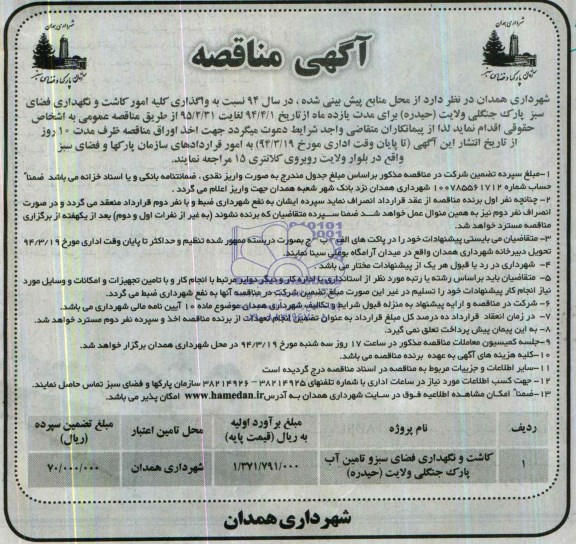 شهرداری همدان
سازمان پارکها و فضای سبز
آگهی مناقصه
شهرداری همدان
سازمان پارکها و فضای سبز
شهرداری همدان در نظر دارد از محل منابع پیش بینی شده ، در سال ۹۴ نسبت به واگذاری کلیه امور کاشت و نگهداری فضای
سبز پارک جنگلی ولایت (حیدره) برای مدت یازده ماه ازتاریخ ۹۴/۴/۱ لغایت ۹۵/۲/۳۱ از طریق مناقصه عمومی به اشخاص
حقوقی اقدام نماید لذا از پیمانکاران متقاضی واجد شرایط دعوت میگردد جهت اخذ اوراق مناقصه ظرف مدت ۱۰ روز
از تاریخ انتشار این آگهی (تا پایان وقت اداری مورخ ۹۴/۳/۱۹) به امور قراردادهای سازمان پارکها و فضای سبز
واقع در بلوار ولایت روبروی کلانتری ۱۵ مراجعه نمایند.
۱-مبلغ سپرده تضمین شرکت در مناقصه مذکور براساس مبلغ جدول مندرج به صورت واریز نقدی ، ضمانتنامه بانکی و یا اسناد خزانه می باشد. ضمناً
حساب شماره ۱۰۰۷۸۵۵۶۱۷۱۲ شهرداری همدان نزد بانک شهر شعبه همدان جهت واریز اعلام می گردد .
۲-چنانچه نفر اول برنده مناقصه از عقد قرارداد انصراف نماید سپرده ایشان به نفع شهرداری ضبط و با نفر دوم قرارداد منعقد می گردد و در صورت
انصراف نفر دوم نیز به همین منوال عمل خواهد شد ضمنا سپرده متقاضیان که برنده نشوند (به غیر از نفرات اول و دوم) بعد از یکهفته از برگزاری
مناقصه مسترد خواهد شد.
۳- متقاضیان می بایستی پیشنهادات خود را در پاکت های الف ب ج بصورت دربسته ممهور شده تنظیم و حداکثر تا پایان وقت اداری مورخ ۹۴/۳/۱۹
تحویل دبیرخانه شهرداری همدان واقع در میدان آرامگاه بوعلی سینا نمایند.
۴- شهرداری در رد یا قبول هر یک از پیشنهادات مختار می باشد.
۵- متقاضیان باید براساس رشته یا رتبه مورد نظر از استانداری یا اداره کار و دیگر دوایر مرتبط با انجام کار و با تامین تجهیزات و امکانات و وسایل مورد
نیاز انجام کار پیشنهادات خود را تسلیم در غیر این صورت مبلغ تضمین شرکت در مناقصه آنها به نفع شهرداری ضبط می گردد.
۶- شرکت در مناقصه و ارایه پیشنهاد به منزله قبول شرایط و تکالیف شهرداری همدان موضوع ماده ۱۰ آیین نامه مالی شهرداری می باشد.
۷- در زمان انعقاد قرارداد ده درصد کل مبلغ قرارداد به عنوان تضمین انجام تعهدات از برنده مناقصه اخذ و سپرده نفر دوم مسترد خواهد شد.
۸- به این پیمان پیش پرداخت تعلق نمی گیرد.
۹-جلسه کمیسیون معاملات مناقصه مذکور در ساعت ۱۷ روز سه شنبه مورخ ۹۴/۳/۱۹ در محل شهرداری همدان برگزار خواهد شد.
۱۰-کلیه هزینه های آگهی به عهده برنده مناقصه می باشد.
۱۱-سایر اطلاعات و جزییات مربوط به مناقصه در اسناد مناقصه درج گردیده است
۱۲-جهت کسب اطلاعات مورد نیاز در ساعات اداری با شماره تلفنهای ۳۸۲۱۴۹۲۵ - ۳۸۲۱۴۹۲۶ سازمان پارکها و فضای سبز تماس حاصل نمایند.
۱۳-ضمناً امکان مشاهده اطلاعیه فوق در سایت شهرداری همدان به آدرس www.hamedan.ir امکان پذیر می باشد.
ردیف نام پروژه مبلغ برآورد اولیه به ریال (قیمت پایه) محل تامین اعتبار مبلغ تضمین سپرده (ریال)
۱ کاشت و نگهداری فضای سبزو تامین آب پارک جنگلی ولایت (حیدره) ۱/۳۷۱/۷۹۱/۰۰۰ شهرداری همدان ۷۰/۰۰۰/۰۰۰
شهرداری همدان